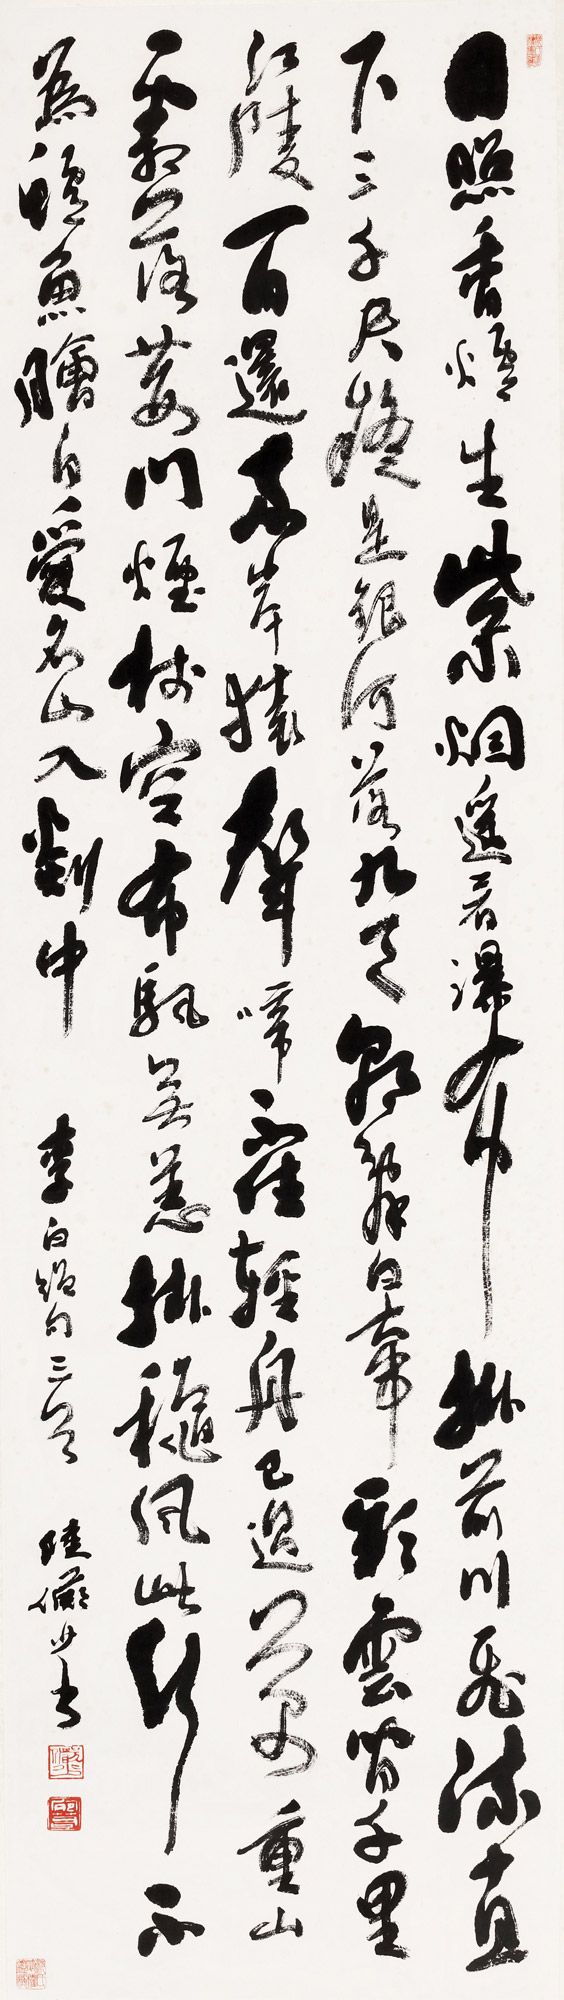 日照香爐生紫烟遥看瀑布掛前川飛流直
下三千尺疑是銀河落九天朝辭白帝彩雲間千里
江陵一日還兩岸猿聲啼不住輕舟已過萬重山
霜落荊門煙樹空布帆無恙掛穐風此行不
為鱸魚膾自愛名山入剡中 李白絕句三首 陸儼少書